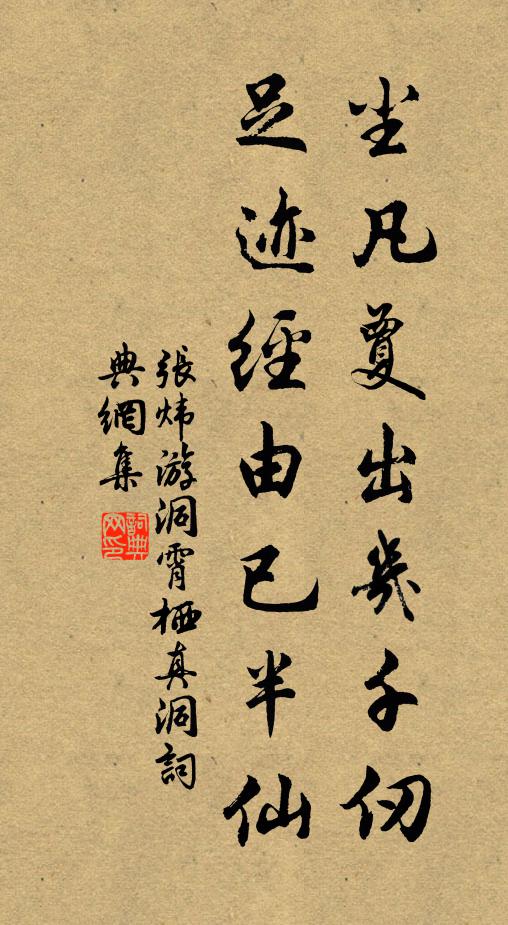 尘凡夐出几千仞
足迹經由已半仙
張炜游洞霄栖真洞詞
典網集
詞典网印